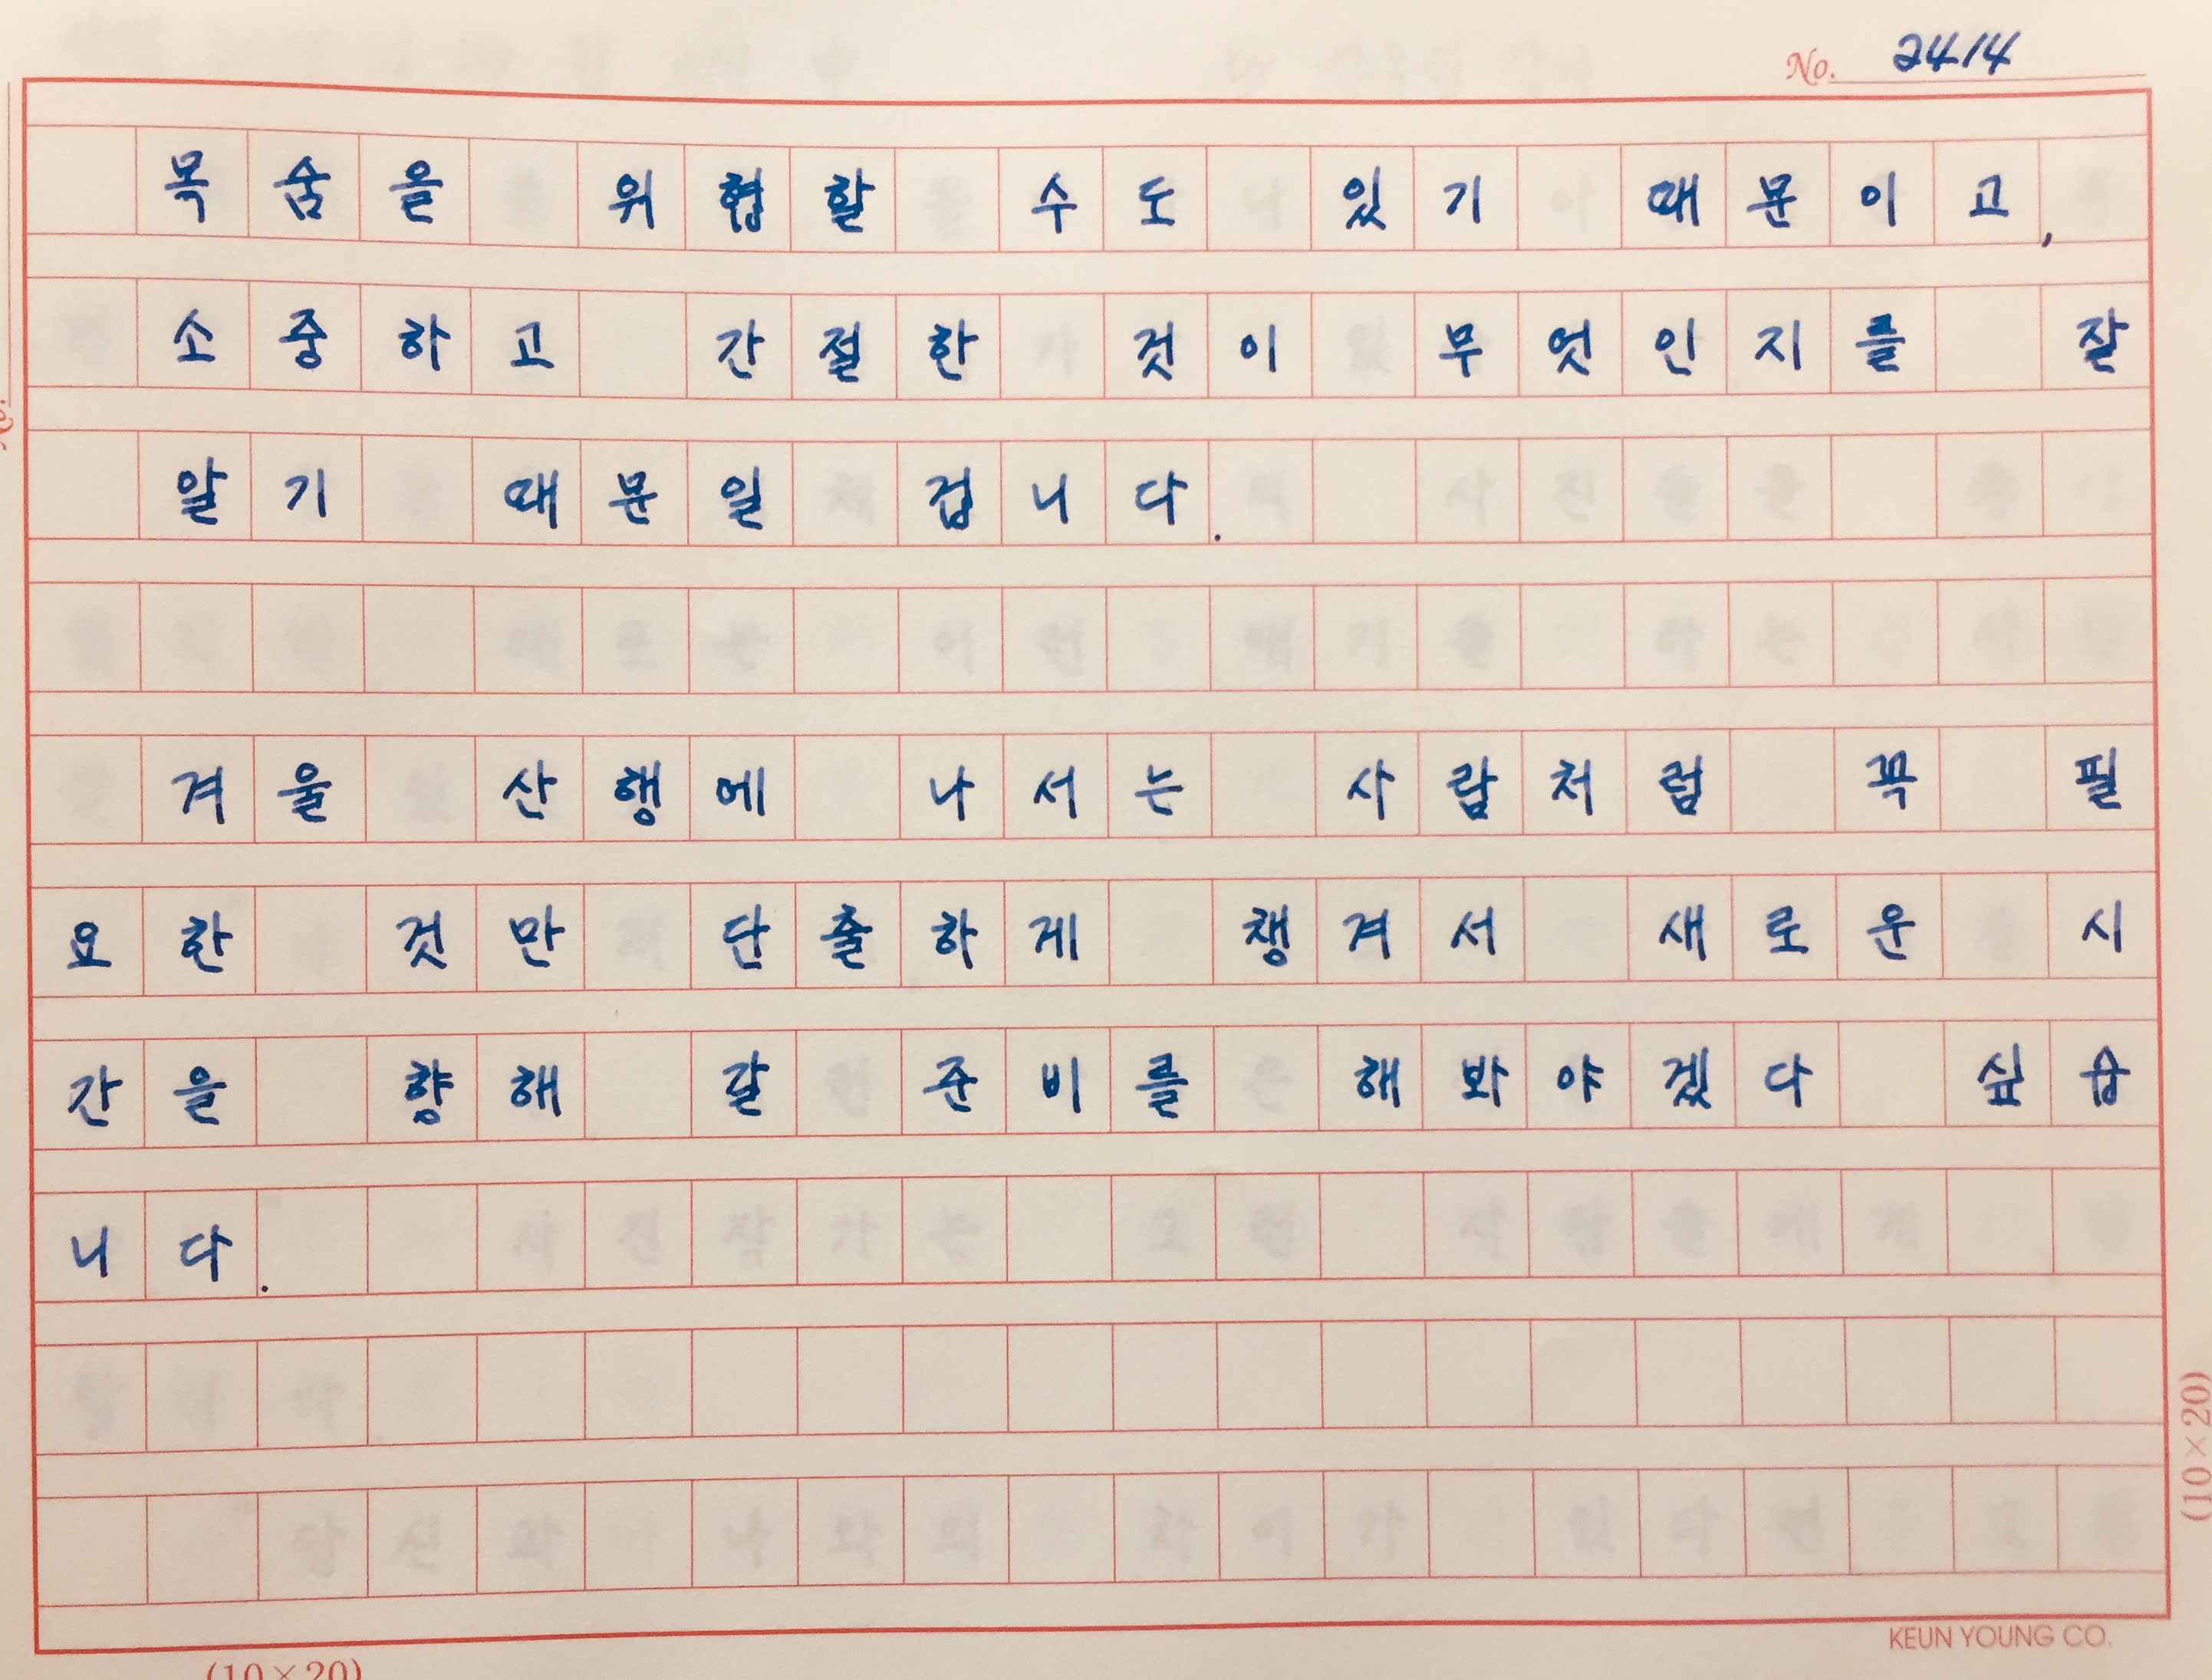 No. 2414
목숨을 위협할 수도 있기 때문이고,
소중하고 간절한 것이 무엇인지를 잘
알기 때문일 겁니다.
겨울 산행에 나서는 사람처럼 꼭 필
요한 것만 단출하게 챙겨서 새로운 시
간을 향해 갈 준비를 해봐야겠다 싶습
니다.
(10×20)
KEUN YOUNG CO.
(10×20)
No.